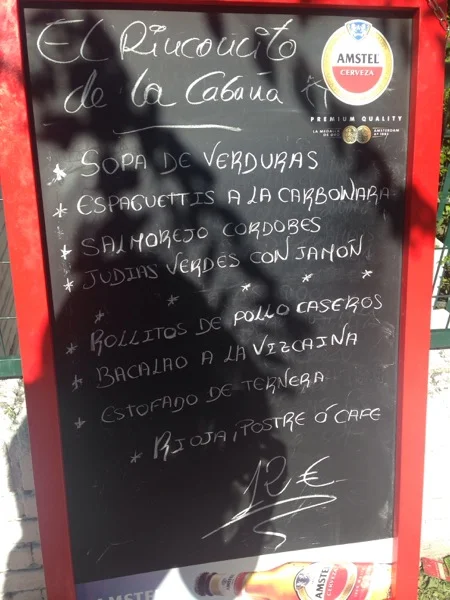 El Rinconcito
de la Cabaña
AMSTEL
CERVEZA
PREMIUM QUALITY
* SOPA DE VERDURAS
* ESPAGUETTIS A LA CARBONARA
* SALMOREJO CORDOBES
* JUDIAS VERDES CON JAMÓN
* * * * *
* ROLLITOS DE POLLO CASEROS
* BACALAO A LA VIZCAINA
* ESTOFADO DE TERNERA
* RIOJA, POSTRE Ó CAFE
12 €
AMSTEL
CERVEZA